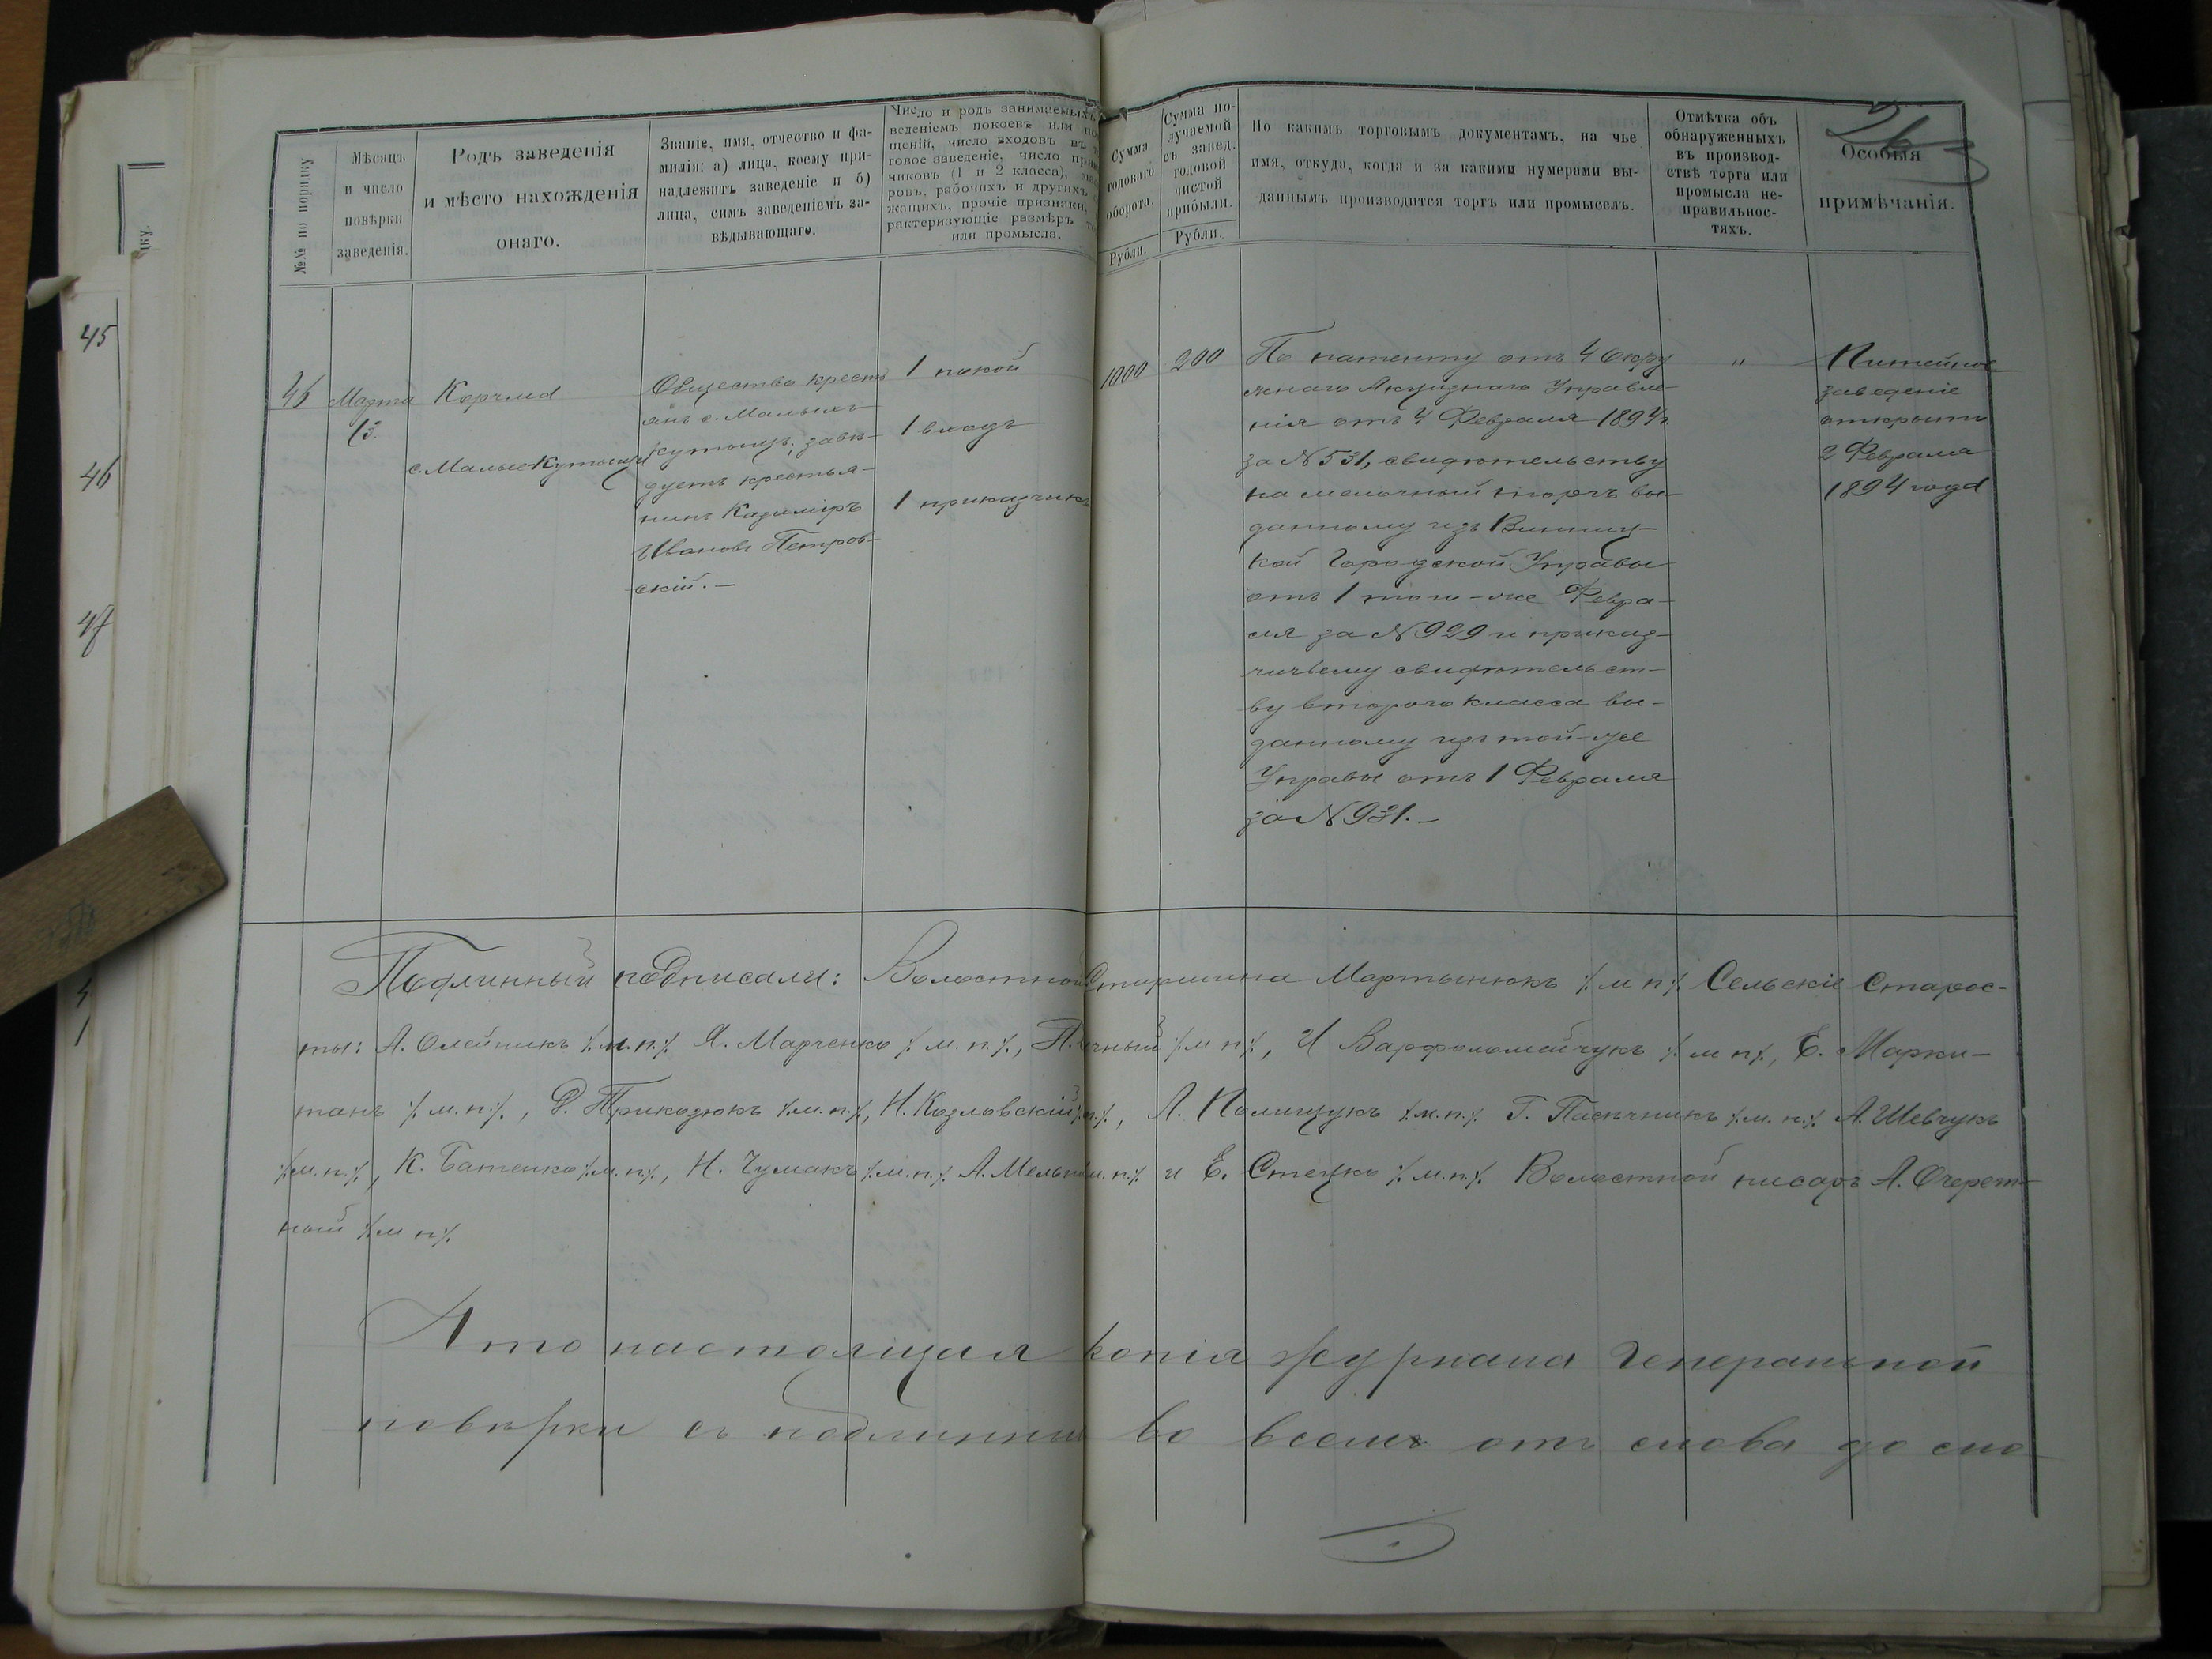 45
46
47
№№ по порядку
Мѣсяцъ
и число
повѣрки
заведенія.
Родъ заведенія
и мѣсто нахожденія
онаго.
Званіе, имя, отчество и фа-
милія: а) лица, коему при-
надлежитъ заведеніе и б)
лица, симъ заведеніемъ за-
вѣдывающаго.
Число и родъ занимаемыхъ
веденіемъ покоевъ или по
щеній, число входовъ въ
говое заведеніе, число при
чиковъ (1 и 2 класса),
ровъ, рабочихъ и другихъ
жащихъ, прочіе признаки,
рактеризующіе размѣръ
или промысла.
Сумма
годоваго
оборота.
Рубли.
Сумма по-
лучаемой
съ завед.
годовой
чистой
прибыли.
Рубли.
По какимъ торговымъ документамъ, на чье
имя, откуда, когда и за какими нумерами вы-
даннымъ производится торгъ или промыселъ.
Отмѣтка объ
обнаруженныхъ
въ производ-
ствѣ торга или
промысла не-
правильнос-
тяхъ.
Особыя
примѣчанія.
46
Марта
13.
Корчма
с. Малые-Кутыщи
Общество кресть
янъ с. Малыхъ
Кутыщъ; завѣ-
дуетъ крестья-
нинъ Казиміръ
Ивановъ Петров-
скій.-
1 покой
1 входъ
1 приказчикъ
1000
200
По патенту отъ 4 Окру
жнаго Акцизнаго Управле-
нія отъ 4 Февраля 1894 г.
за N 531, свидѣтельству
на мелочный торгъ вы-
данному изъ Винниц-
кой Городской Управы
отъ 1 того-же Февра-
ля за N 929 и приказ-
чичьему свидѣтельст-
ву второго класса вы-
данному изъ той-же
Управы отъ 1 Февраля
за N 931.-
"
Питейное
заведеніе
открыто
2 Февраля
1894 года
Подлинный подписали: Волостной Старшина Мартынюкъ /:м п:/ Сельскіе Старос-
ты: А. Олейникъ /:м.п.:/ Я. Марченко /:м.п.:/, /:м п:/, И Варфоломейчукъ /:м п:/, Е. Марки-
танъ /:м.п.:/, Д. Приказюкъ /:м.п.:/, Н. Козловскій /:п.:/, Л. Полищукъ /:м.п.:/ Г. Пасѣчникъ /:м.п.:/ А. Шевчукъ
/:м.п.:/, К. Батенко /:м.п.:/, Н. Чумакъ /:м.п.:/ А. Мельни м.п.:/ и Е. Стецко /:м.п.:/ Волостной писарь А. Очерет-
ный /:м п:/
А что настоящая копія журнала Генеральной
повѣрки съ подлинным во всемъ отъ слова до сло